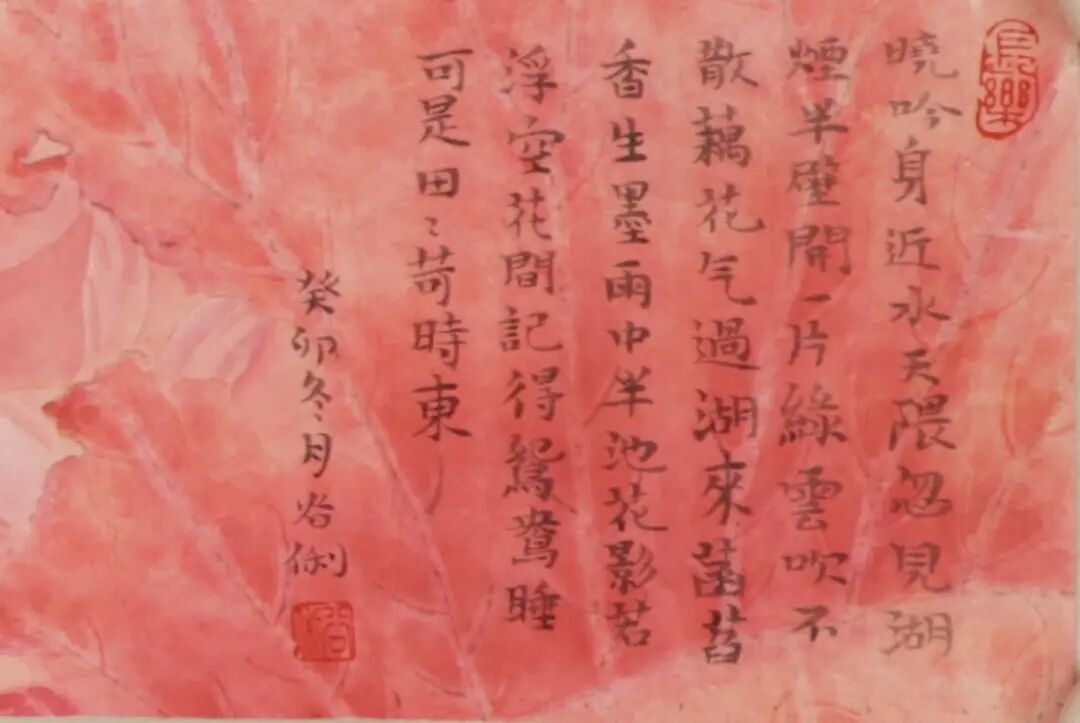 長樂
曉吟身近水天隈忽見湖
煙半壁開一片綠雲吹不
散藕花气過湖來菡萏
香生墨雨中半池花影茗
浮空花間記得鴛鴦睡
可是田〻荷時東
癸卯冬月